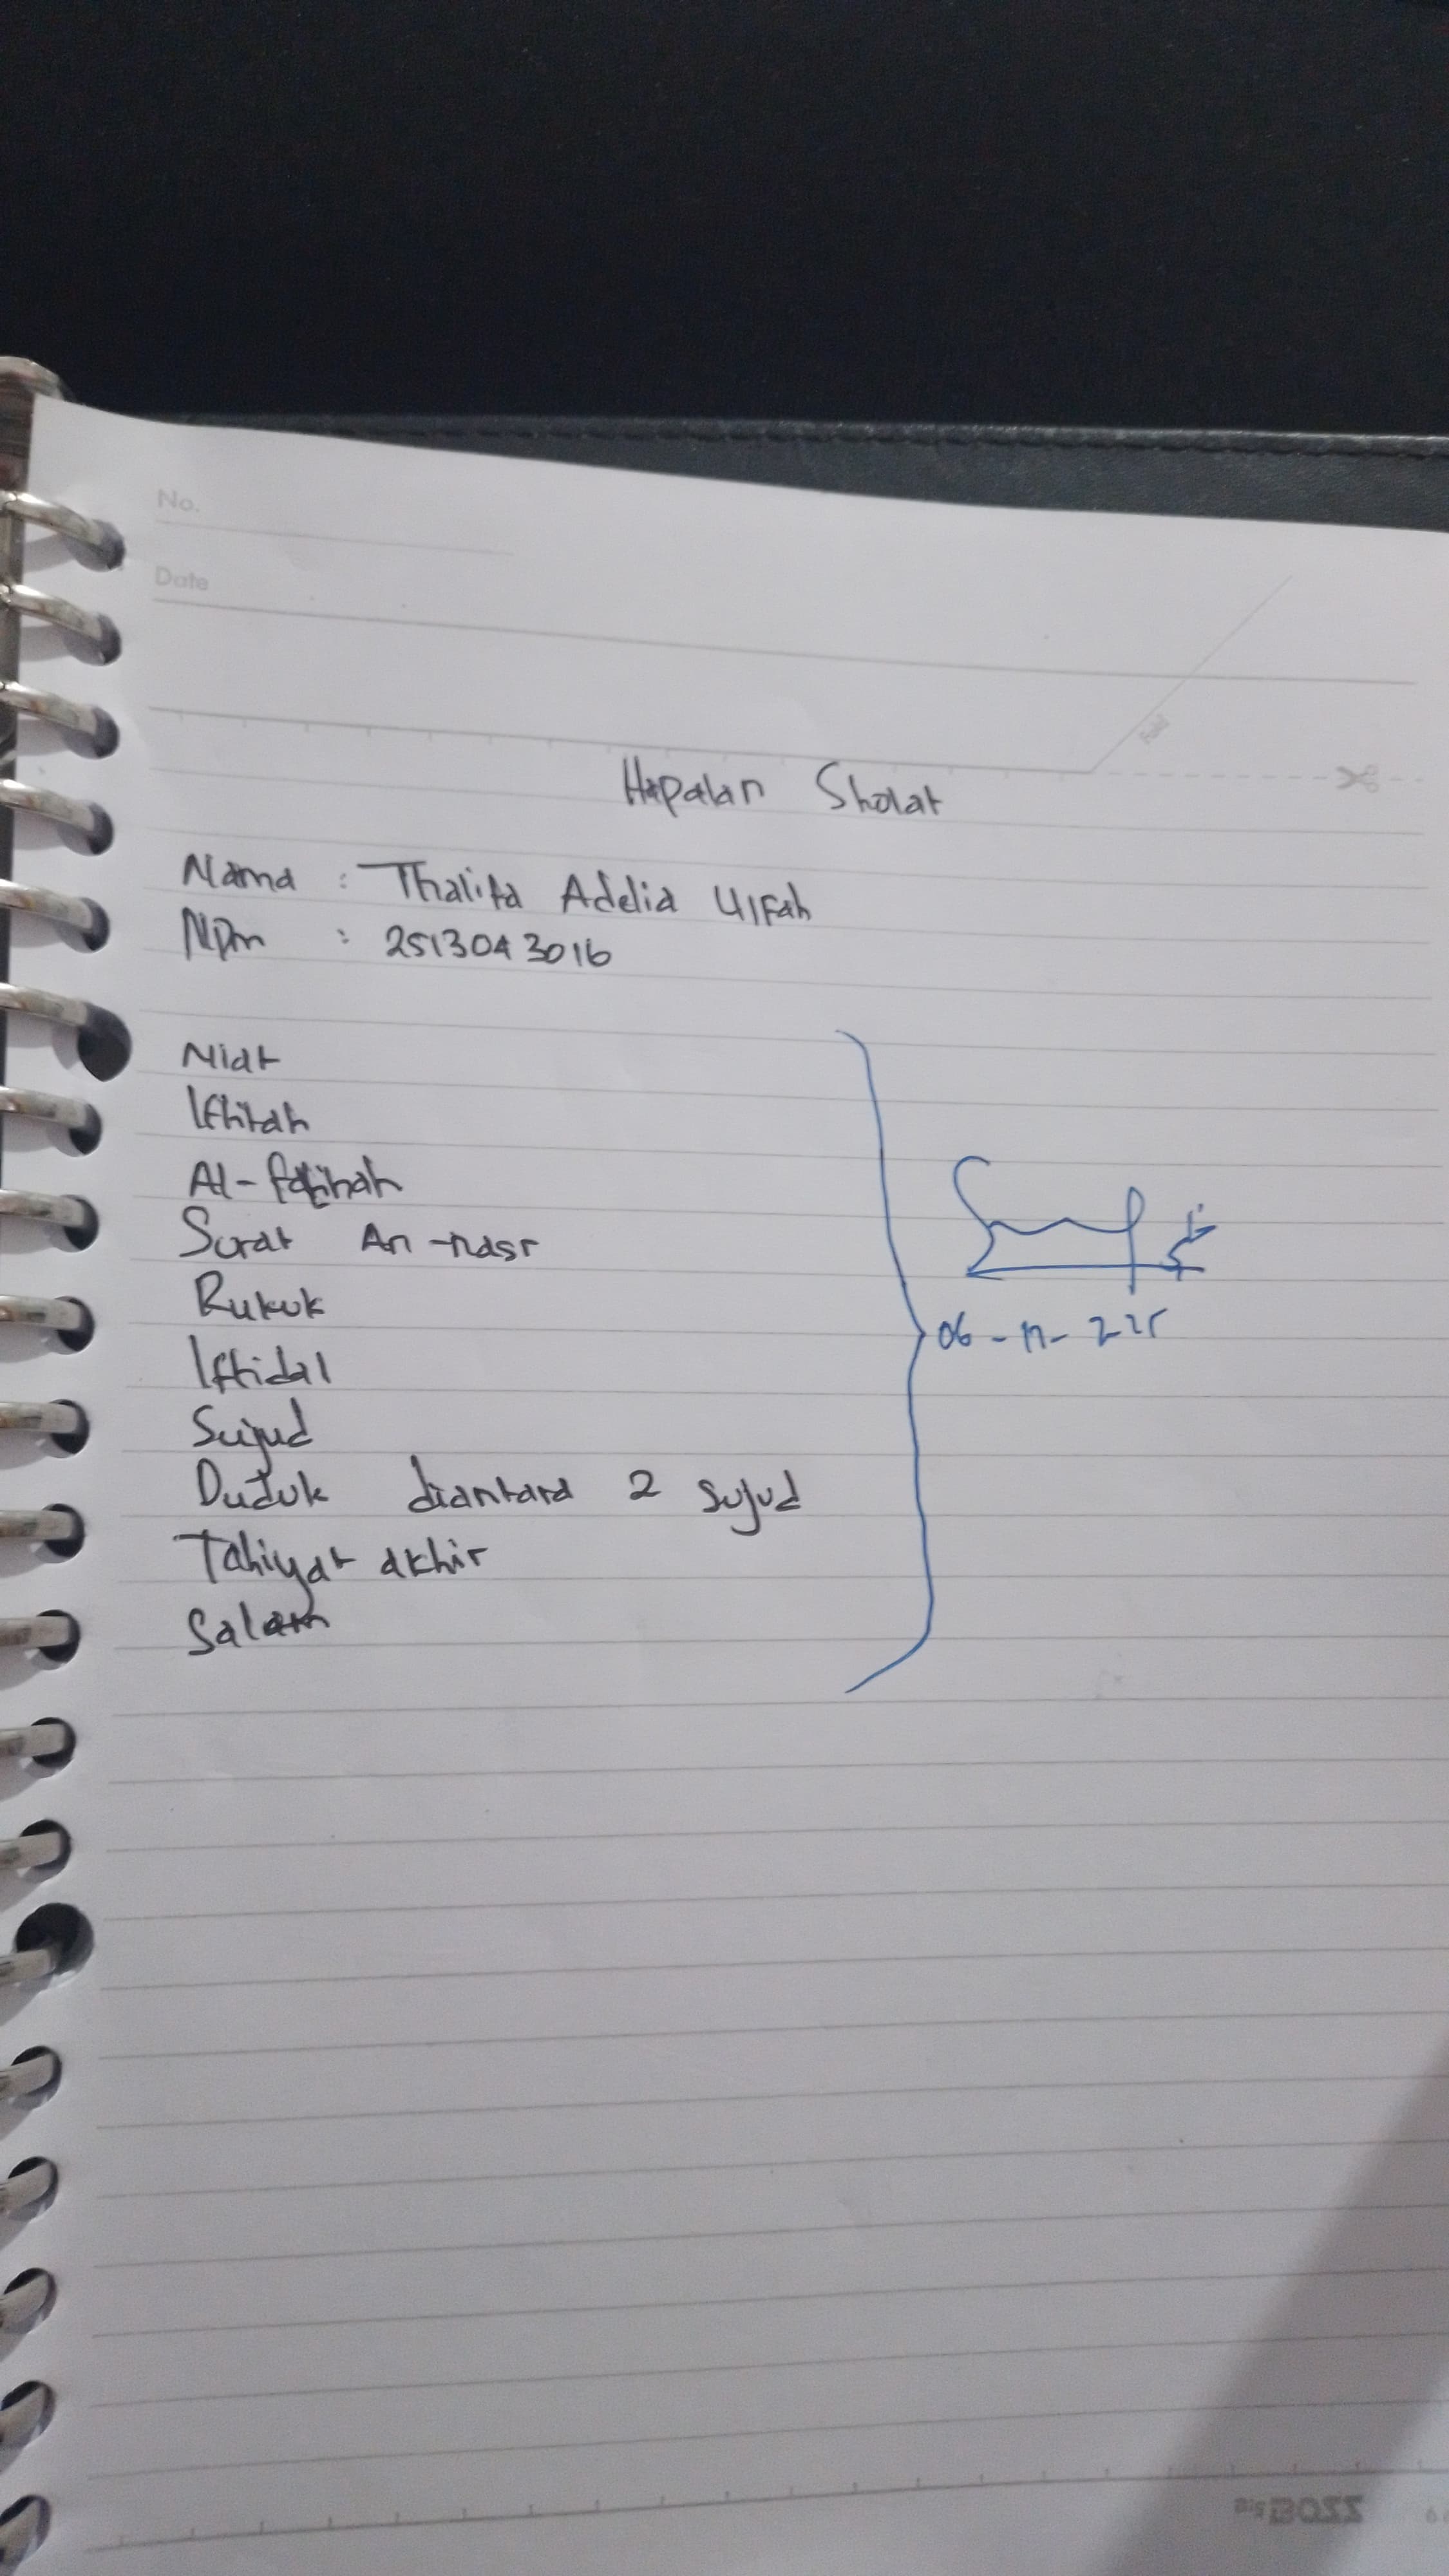 No.
Date
Hapalan Sholat
Nama : Thalita Adelia Ulfah
NPm : 2513043016
Niat
Iftitah
Al-fatihah
Surat An-nasr
Rukuk
Iftidal
Sujud
Duduk diantara 2 sujud
Tahiyat akhir
Salam
06 - 11 -